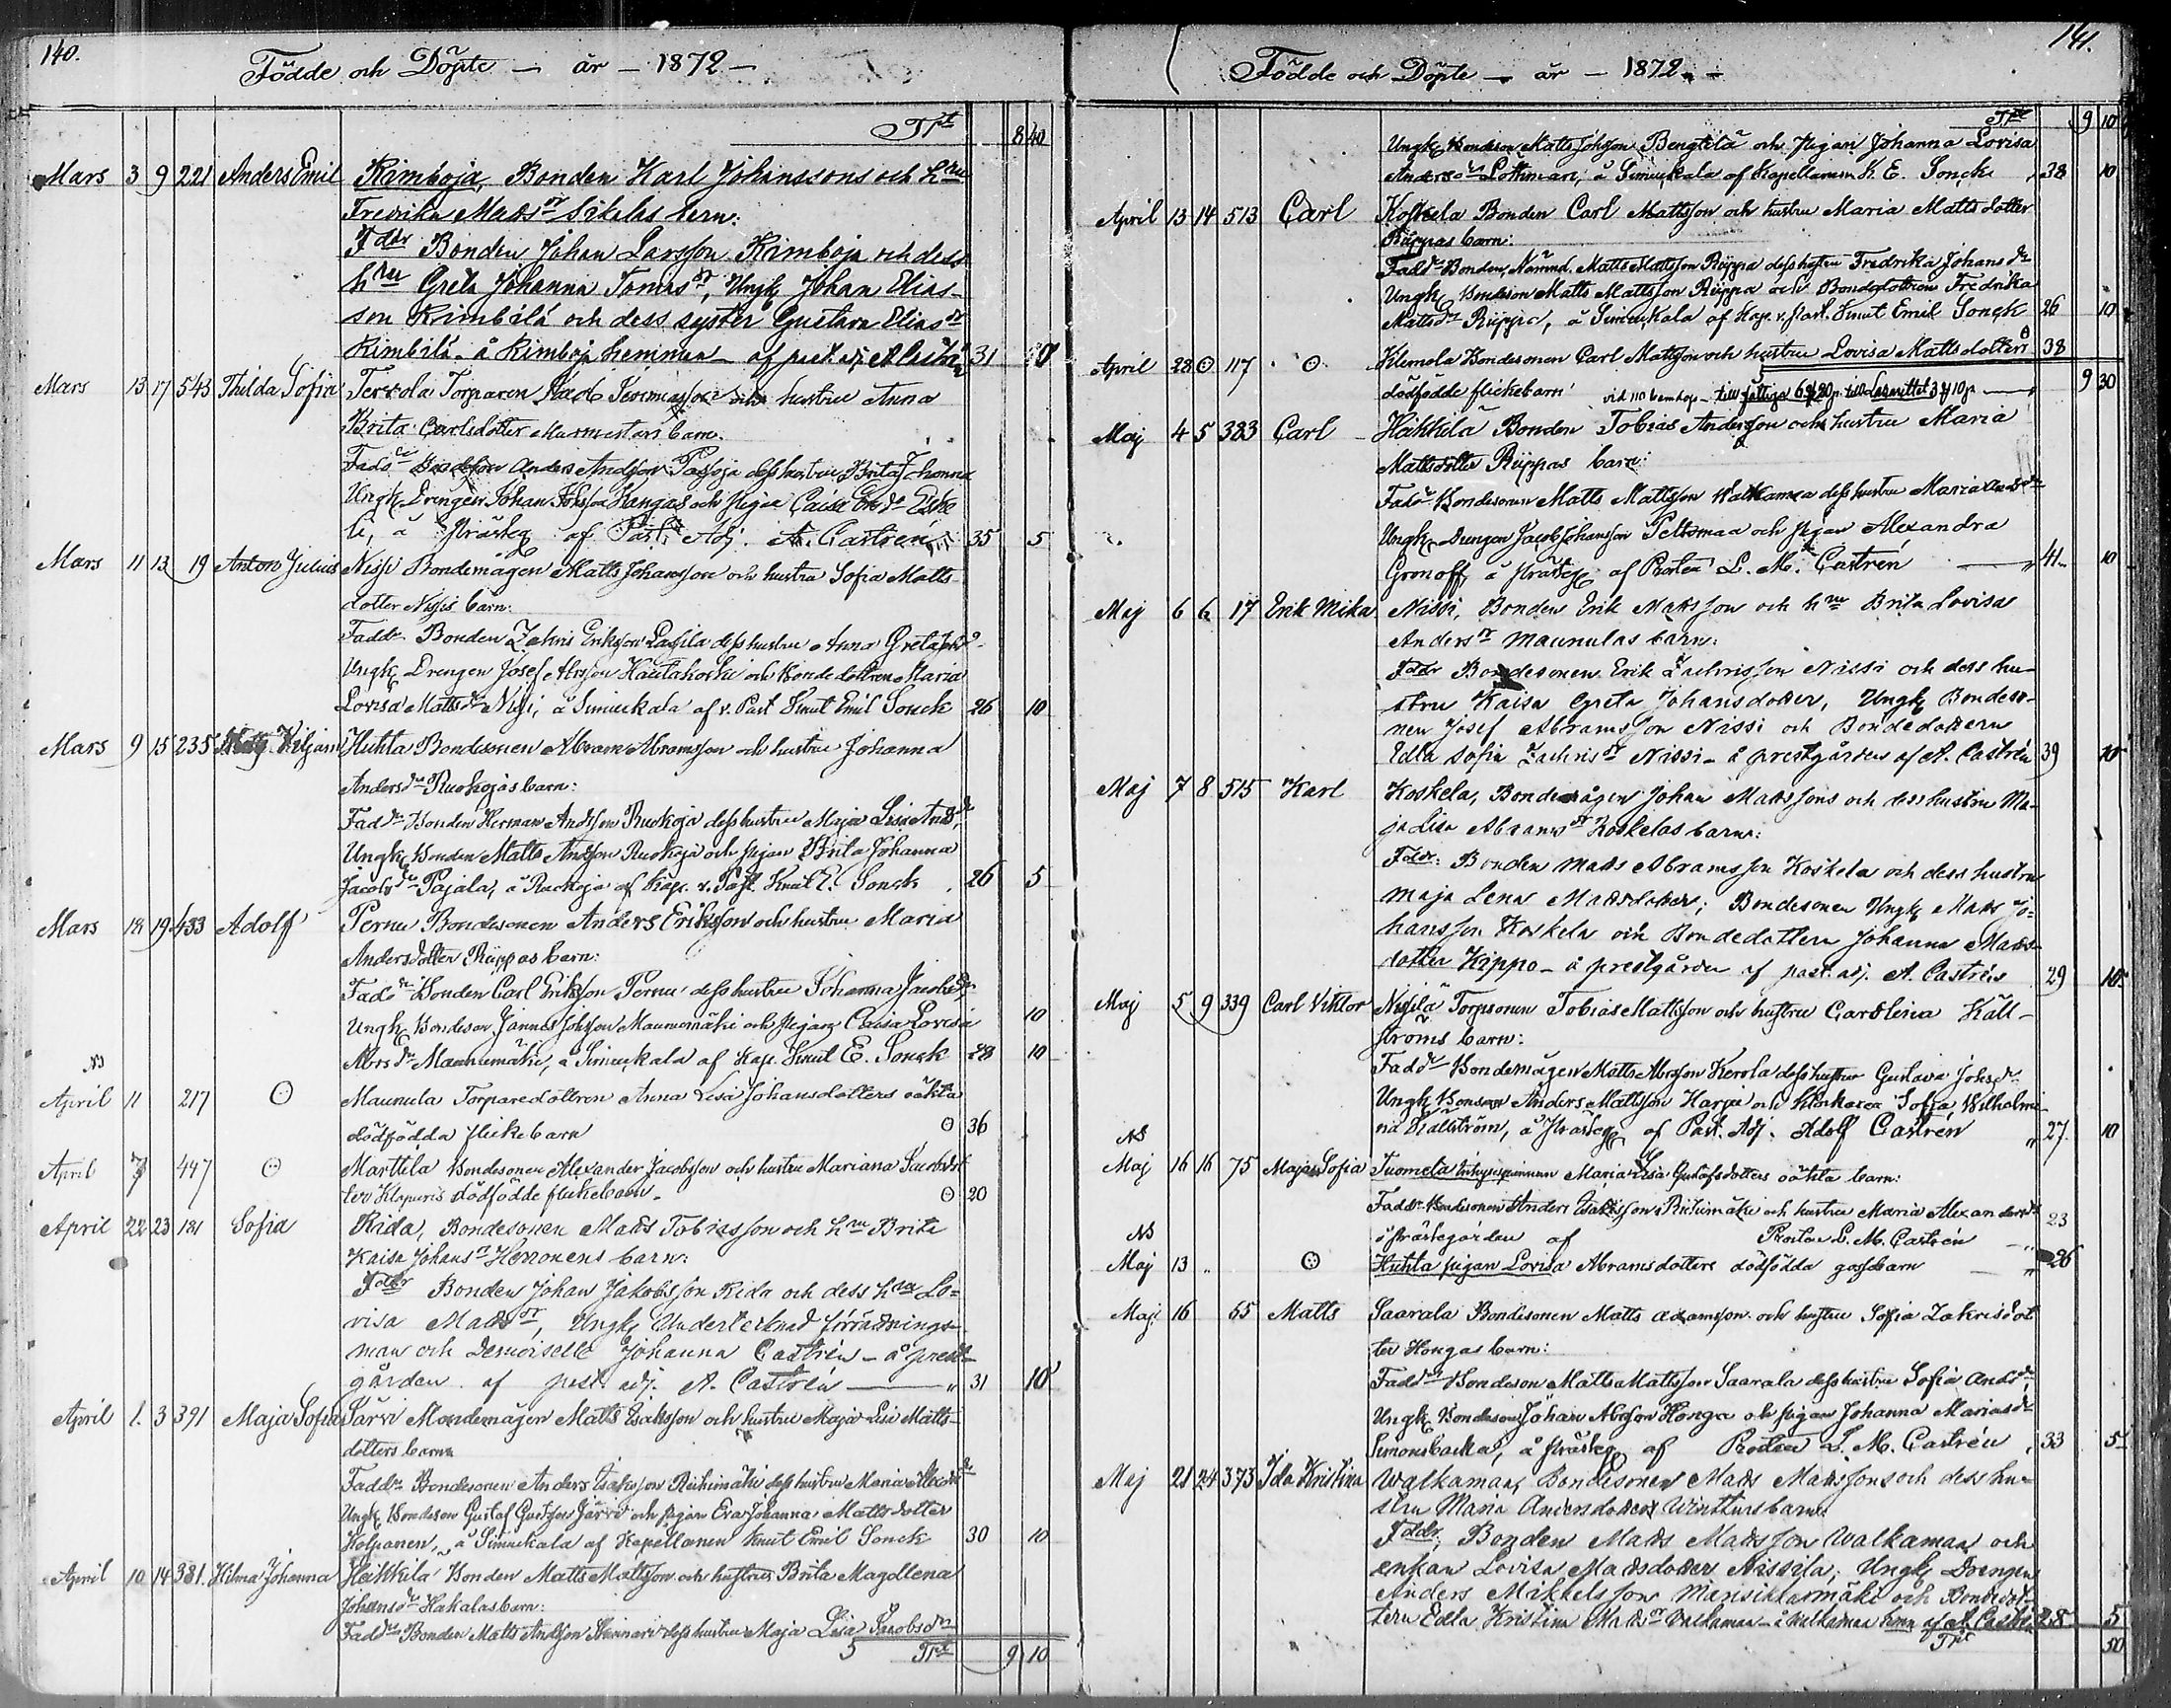 140.
Födde och Döpte — år — 1872 —
Trt 8 40
Mars 3 9 221 Anders Emil Rimboja, Bonden Karl Johanssons och hru
Fredrika Matsdr Sikelas barn:
Fddr Bonden Johan Larsson Rimboja och dess
hru Greta Johanna Tomasdr, Ungk Johan Elias-
son Rimbilä och dess syster Gustava Eliasdr
Rimbilä – å Rimboja hemman – af past. adj. A. Castrén 31
Mars 13 17 543 Thilda Sofia Torparen och hustru Anna
Brita Carlsdotter Murmestars barn.
Faddr Bondeson Anders Andsson Pasoja dess hustru Brita Johanna
Ungk Drengen Johan Johsson Kangas och pigan Caisa
å prästeg af Past. Adj. A. Castrén 35 5
Mars 11 13 19 Anton Julius Nissi Bondemågen Matts Johansson och hustru Sofia Matts-
dotter Nissis barn:
Faddr Bonden Zakris Eriksson Lassila dess hustru Anna Greta
Ungk Drengen Josef Abrsson Hautakoski och Bondedottren Maria
Lovisa Mattsdr Nissi, å Simukala af v. Past Knut Emil Sonck 26 10
Mars 9 15 235 Viljam Huhta Bondesonen Abram Abramsson och hustru Johanna
Andersdr Ruokojas barn:
Faddr Bonden Herman Andsson Ruokoja dess hustru Maja Lisa Andsdr
Ungk Bonden Matts Andsson Ruokoja och pigan Brita Johanna
Jacobsdr Pajala, å Ruokoja af Kap. v. Past. Knut E. Sonck 26 5
Mars 18 19 433 Adolf Pernu Bondesonen Anders Eriksson och hustru Maria
Andersdotter Riippas barn:
Faddr Bonden Carl Eriksson Pernu dess hustru Johanna Jacobsdr
Ungk Bondeson Jannes Johsson Maunumäki och pigan Caisa Lovisa 10
Abrsdr Maunumäki, å Simukala af Kap. Knut E. Sonck 28 10
NB
April 11 217 Maunula Torparedottren Anna Lisa Johansdotters oäkta
dödfödda flickebarn 36
April 7 447 Marttila Bondesonen Alexander Jacobsson och hustru Mariana Jacobsdot
ter Klapuris dödfödde flickebarn. 20
April 22 23 181 Sofia Rida, Bondesonen Mats Tobiasson och hru Brita
Kaisa Johansdr Herronens barn:
Fddr Bonden Johan Jakobsson Rida och dess hru Lo-
visa Matsdr, Ungk Undertecknad förrättnings-
man och Demoiselle Johanna Castrén – å prest-
gården af past. adj. A. Castrén — " 31 10
April 1 3 391 Maja Sofia Järvi Bondemågen Matts Isaksson och hustru Maja Lisa Matts-
dotters barn
Faddr Bondesonen Anders Isaksson Riihimäki dess hustru Maria Alexdr
Ungk Bondeson Gustaf Gustfson Järvi och pigan Eva Johanna Mattsdotter
Holpanen, å Simukala af Kapellanen Knut Emil Sonck 30 10
April 10 14 381. Hilma Johanna Heikkilä Bonden Matts Mattsson och hustru Brita Magdlena
Johansdr Hakalas barn:
Faddr Bonden Matts Andsson dess hustru Maja Lisa Jacobsdr
Trt 9 10
141.
Födde och Döpte — år — 1872. —
Trt 9 10
Ungk Bondeson Matts Johsson Bengtilä och pigan Johanna Lovisa
Andersdr Lothman, å Simukala af Kapellanen K. E. Sonck 38 10
April 13 14 513 Carl Koskela Bonden Carl Mattsson och hustru Maria Mattsdotter
Riippas barn:
Faddr Bonden, Nämnd. Matts Mattsson Riippa dess hustru Fredrika Johansdr
Ungk Bondeson Matts Mattsson Riippa och Bondedottren Fredrika
Mattsdr Riippa, å Simukala af Kap. v. Past. Knut Emil Sonck 26 10
April 28 117 Klemola Bondesonen Carl Mattsson och hustru Lovisa Mattsdotters 38
dödfödde flickebarn 9 30
Maj 4 5 383 Carl Häikkilä Bonden Tobias Andersson och hustru Maria
Mattsdotter Riippas barn:
Faddr Bondesonen Matts Mattsson Walkama dess hustru Maria
Ungk Drengen Jacob Johansson Peltomaa och pigan Alexandra
Gronoff å prästeg af Prosten L. M. Castrén — " 41 10
Maj 6 6 17 Erik Mika Nissi, Bonden Erik Matsson och hru Brita Lovisa
Andersdr Maunulas barn:
Fddr Bondesonen Erik Zachrisson Nissi och dess hu-
stru Kaisa Greta Johansdotter, Ungk Bondeso-
nen Josef Abramsson Nissi och Bondedottern
Edla Sofia Zachrisdr Nissi – å prestgården af A. Castrén 39 10
Maj 7 8 515 Karl Koskela, Bondemågen Johan Matssons och dess hustru Ma-
ja Lisa Abramsdr Koskelas barn:
Fddr: Bonden Mats Abramsson Koskela och dess hustru
Maja Lena Matsdotter; Bondesonen Ungk Mats Jo-
hansson Koskela och Bondedottern Johanna Mats-
dotter Kippo – å prestgården af past. adj. A. Castrén 29 10
Maj 5 9 339 Carl Viktor Nisilä Torpsonen Tobias Mattsson och hustru Carolina Käll-
ströms barn:
Faddr Bondemågen Matts Abrsson Kerola dess hustru Gustava Johsdr
Ungk Bonson Anders Mattsson Harju och Sofia Wilhelmi-
na Källström, å prästeg af Past. Adj. Adolf Castrén " 27. 10
NB
Maj 16 16 75 Maja Sofia Tuomela Maria Lisa Gustafsdotters oäkta barn:
Faddr Bondesonen Anders Isaksson Riihimäki och hustru Maria Alexandersdr 23
NB
å prästegården af Prosten L. M. Castrén "
Maj 13 " Huhta pigan Lovisa Abramsdotters dödfödda gossbarn — " 26
Maj 16 65 Matts Saarala Bondesonen Matts Adamsson och hustru Sofia Zakrisdot
ter Hongas barn:
Faddr Bondeson Matts Mattsson Saarala dess hustru Sofia Andsdr
Ungk Bondeson Johan Abrsson Honga och pigan Johanna Mariasdr
Simonsbacka, å prästeg af Prosten L. M. Castrén 33 5
Maj 21 24 373 Ida Kristina Walkaman, Bondesonen Mats Matssons och dess hu-
stru Maria Andersdotter Wintturs barn:
Fddr, Bonden Mats Matsson Walkaman och
enkan Lovisa Matsdotter Nissilä, Ungk Drengen
Anders Mikkelsson Mansikkamäki och Bondedot-
tern Edla Kristina Matsdr Walkaman – å Walkaman hmn af A. Castrén 28 5
Trt 50